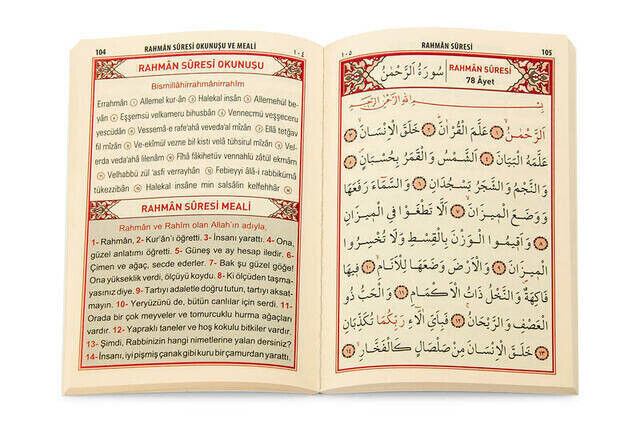 104 RAHMÂN SÛRESİ OKUNUŞU VE MEALİ ١٠٤
RAHMÂN SÛRESİ OKUNUŞU
Bismillâhirrahmânirrahîm
Errahmân ① Allemel kur-ân ② Halekal insân ③ Allemehül be-
yân ④ Eşşemsü velkameru bihusbân ⑤ Vennecmü veşşeceru
yescüdân ⑥ Vessemâ-e rafe'ahâ veveda'al mîzân ⑦ Ellâ tetğav
fil mîzân ⑧ Ve-ekîmül vezne bil kıstı velâ tühsirul mîzân ⑨ Vel-
erda veda'ahâ lilenâm ⑩ Fîhâ fâkihetüv vennahlü zâtül ekmâm
⑪ Velhabbü zül 'asfi verrayhân ⑫ Febieyyi âlâ-i rabbikümâ
tükezzibân ⑬ Halekal insâne min salsâlin kelfehhâr ⑭
RAHMÂN SÛRESİ MEALİ
Rahmân ve Rahîm olan Allah'ın adıyla,
1- Rahmân, 2- Kur'ân'ı öğretti. 3- İnsanı yarattı. 4- Ona,
güzel anlatımı öğretti. 5- Güneş ve ay hesap iledir. 6-
Çimen ve ağaç, secde ederler. 7- Bak şu güzel göğe!
Ona yükseklik verdi, ölçüyü koydu. 8- Ki ölçüden taşma-
yasınız diye. 9- Tartıyı adaletle doğru tutun, tartıyı aksat-
mayın. 10- Yeryüzünü de, bütün canlılar için serdi. 11-
Orada bir çok meyveler ve tomurcuklu hurma ağaçları
vardır. 12- Yapraklı taneler ve hoş kokulu bitkiler vardır.
13- Şimdi, Rabbinizin hangi nimetlerine yalan dersiniz?
14- İnsanı, iyi pişmiş çanak gibi kuru bir çamurdan yarattı.
١٠٥ RAHMÂN SÛRESİ 105
سُورَةُ الرَّحْمٰنِ RAHMÂN SÛRESİ
78 Âyet
بِسْمِ اللّٰهِ الرَّحْمٰنِ الرَّحِيمِ
اَلرَّحْمٰنُ ۙ ١ عَلَّمَ الْقُرْاٰنَ ۜ ٢ خَلَقَ الْاِنْسَانَ ۙ ٣
عَلَّمَهُ الْبَيَانَ ٤ اَلشَّمْسُ وَالْقَمَرُ بِحُسْبَانٍ ۖ ٥
وَالنَّجْمُ وَالشَّجَرُ يَسْجُدَانِ ٦ وَالسَّمَٓاءَ رَفَعَهَا
وَوَضَعَ الْمِيزَانَ ۙ ٧ اَلَّا تَطْغَوْا فِي الْمِيزَانِ
٨ وَاَقِيمُوا الْوَزْنَ بِالْقِسْطِ وَلَا تُخْسِرُوا
الْمِيزَانَ ٩ وَالْاَرْضَ وَضَعَهَا لِلْاَنَامِ ۙ ١٠ فِيهَا
فَاكِهَةٌ وَالنَّخْلُ ذَاتُ الْاَكْمَامِ ۖ ١١ وَالْحَبُّ ذُو
الْعَصْفِ وَالرَّيْحَانُ ۚ ١٢ فَبِاَيِّ اٰلَٓاءِ رَبِّكُمَا تُكَذِّبَانِ
١٣ خَلَقَ الْاِنْسَانَ مِنْ صَلْصَالٍ كَالْفَخَّارِ ۙ ١٤